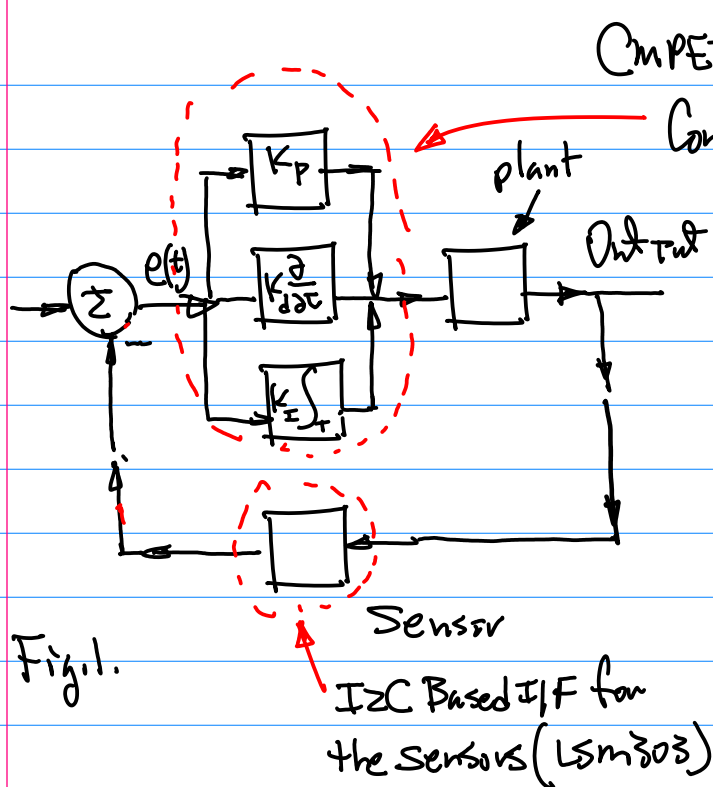 CMPE
Con
plant
Kp
Output
e(t)
K ∂/∂t
Σ
−
K_I ∫_T
Sensor
Fig.1.
I2C Based I/F for
the sensors (LSM303)